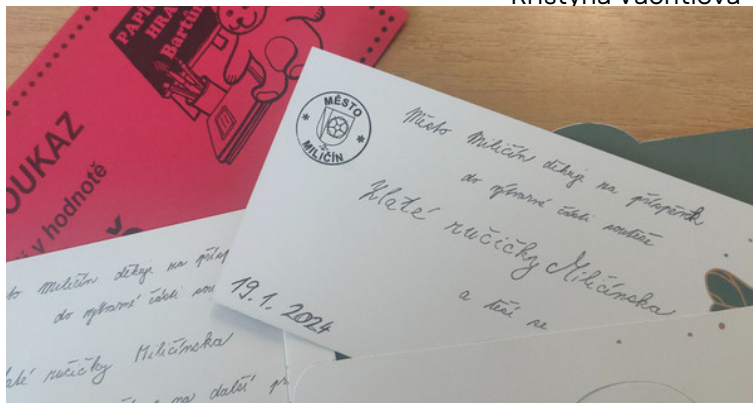 PAPÍ
HRA
Bartůn
OUKAZ
v hodnotě
MĚSTO
MILIČÍN
Město Miličín děkuje za příspěvek
do výtvarné části soutěže
Zlaté ručičky Miličínska
a těší se
19.1. 2024
to Miličín děkuje za přísp
do výtvarné části sou
laté ručičky Miličínska
na další př